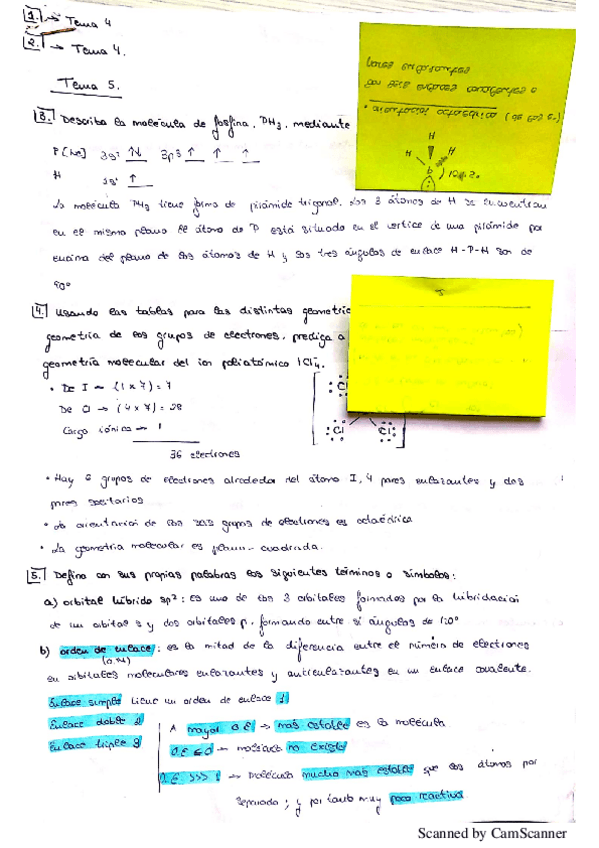 1. → Tema 4
2. → Tema 4.
Tema 5.
3. Describa la molécula de fosfina, PH3, mediante
P [Ne] 3s² ↑↓ 3p3 ↑ ↑ ↑
H 1s¹ ↑
La molécula PH3 tiene forma de pirámide trigonal. Los 3 átomos de H se encuentran
en el mismo plano el átomo de P está situado en el vértice de una pirámide por
encima del plano de los átomos de H y los tres ángulos de enlace H-P-H son de
90º
pares enlazantes
por seis enlaces
• orientación octaédrica (de los e.)
H
H H
4. Usando las tablas para las distintas geometrí
geometría de los grupos de electrones, prediga a
geometría molecular del ion poliatómico ICl⁻4.
• De I → (1 x 7) = 7
De Cl → (4 x 7) = 28
Carga iónica → 1
36 electrones
:Cl
:Cl Cl:
• Hay 6 grupos de electrones alrededor del átomo I, 4 pares enlazantes y dos
pares solitarios
• La orientación de los seis grupos de electrones es octaédrica
• La geometría molecular es plano-cuadrada.
5. Defina con sus propias palabras los siguientes términos o símbolos:
a) orbital híbrido sp²: Es uno de los 3 orbitales formados por la hibridación
de un orbital s y dos orbitales p, formando entre sí ángulos de 120º
b) orden de enlace: es la mitad de la diferencia entre el número de electrones
en orbitales moleculares enlazantes y antienlazantes en un enlace covalente.
Enlace simple tiene un orden de enlace 1
Enlace doble 2
Enlace triple 3
A mayor O.E → más estable es la molécula
O.E ≤ 0 → molécula no existe
O.E >>> 1 → molécula mucho más estable que los átomos por
separado; y por tanto muy poco reactiva.
Scanned by CamScanner